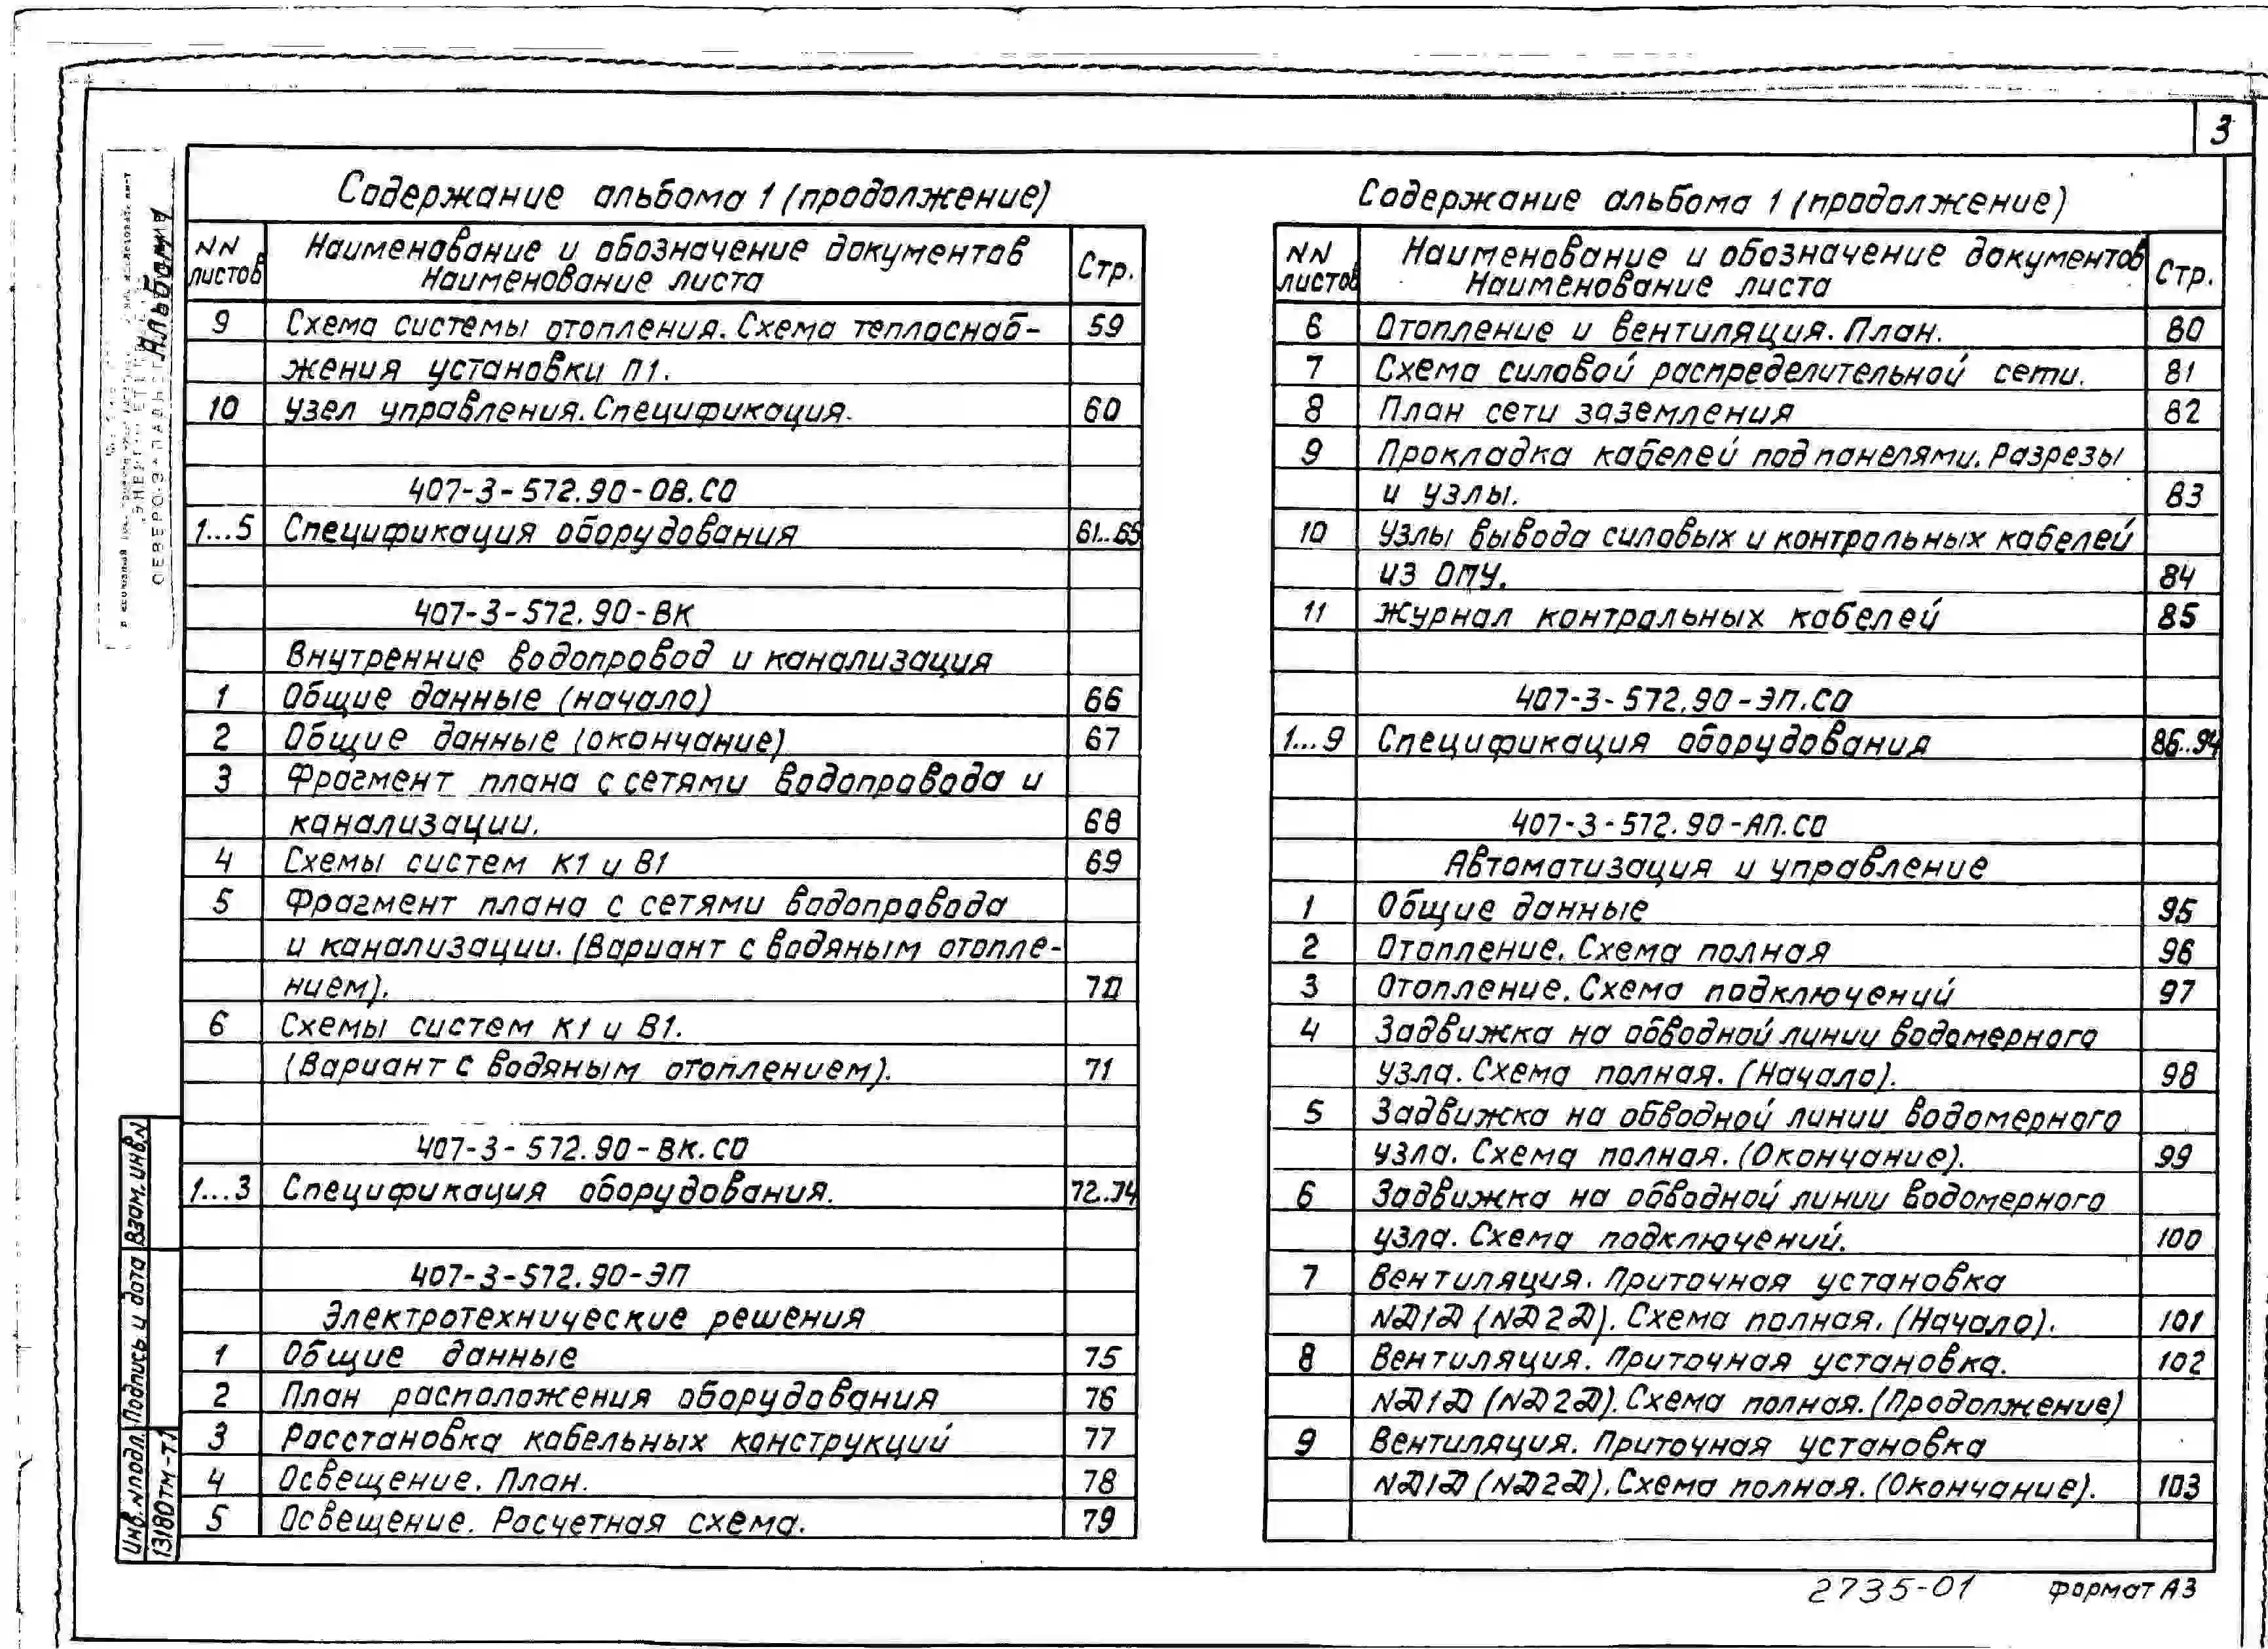 3
Содержание альбома 1 (продолжение)
NN листов
Наименование и обозначение документов
Наименование листа
Стр.
9 Схема системы отопления. Схема теплоснаб- 59
жения установки П1.
10 Узел управления. Спецификация. 60
407-3-572.90-ОВ.СО
1...5 Спецификация оборудования 61..65
407-3-572.90-ВК
Внутренние водопровод и канализация
1 Общие данные (начало) 66
2 Общие данные (окончание) 67
3 Фрагмент плана с сетями водопровода и
канализации. 68
4 Схемы систем К1 и В1 69
5 Фрагмент плана с сетями водопровода
и канализации. (Вариант с водяным отопле-
нием). 70
6 Схемы систем К1 и В1.
(Вариант с водяным отоплением). 71
407-3-572.90-ВК.СО
1...3 Спецификация оборудования. 72..74
407-3-572.90-ЭП
Электротехнические решения
1 Общие данные 75
2 План расположения оборудования 76
3 Расстановка кабельных конструкций 77
4 Освещение. План. 78
5 Освещение. Расчетная схема. 79
Содержание альбома 1 (продолжение)
NN листов
Наименование и обозначение документов
Наименование листа
Стр.
6 Отопление и вентиляция. План. 80
7 Схема силовой распределительной сети. 81
8 План сети заземления 82
9 Прокладка кабелей под панелями. Разрезы
и узлы. 83
10 Узлы вывода силовых и контрольных кабелей
из ОПУ. 84
11 Журнал контрольных кабелей 85
407-3-572.90-ЭП.СО
1...9 Спецификация оборудования 86..94
407-3-572.90-АП.СО
Автоматизация и управление
1 Общие данные 95
2 Отопление. Схема полная 96
3 Отопление. Схема подключений 97
4 Задвижка на обводной линии водомерного
узла. Схема полная. (Начало). 98
5 Задвижка на обводной линии водомерного
узла. Схема полная. (Окончание). 99
6 Задвижка на обводной линии водомерного
узла. Схема подключений. 100
7 Вентиляция. Приточная установка
№1 (№2). Схема полная. (Начало). 101
8 Вентиляция. Приточная установка. 102
№1 (№2). Схема полная. (Продолжение)
9 Вентиляция. Приточная установка
№1 (№2). Схема полная. (Окончание). 103
Альбом 1
Взам. инв. N
Подпись и дата
Инв. N подл.
13180тм-т1
2735-01
формат А3